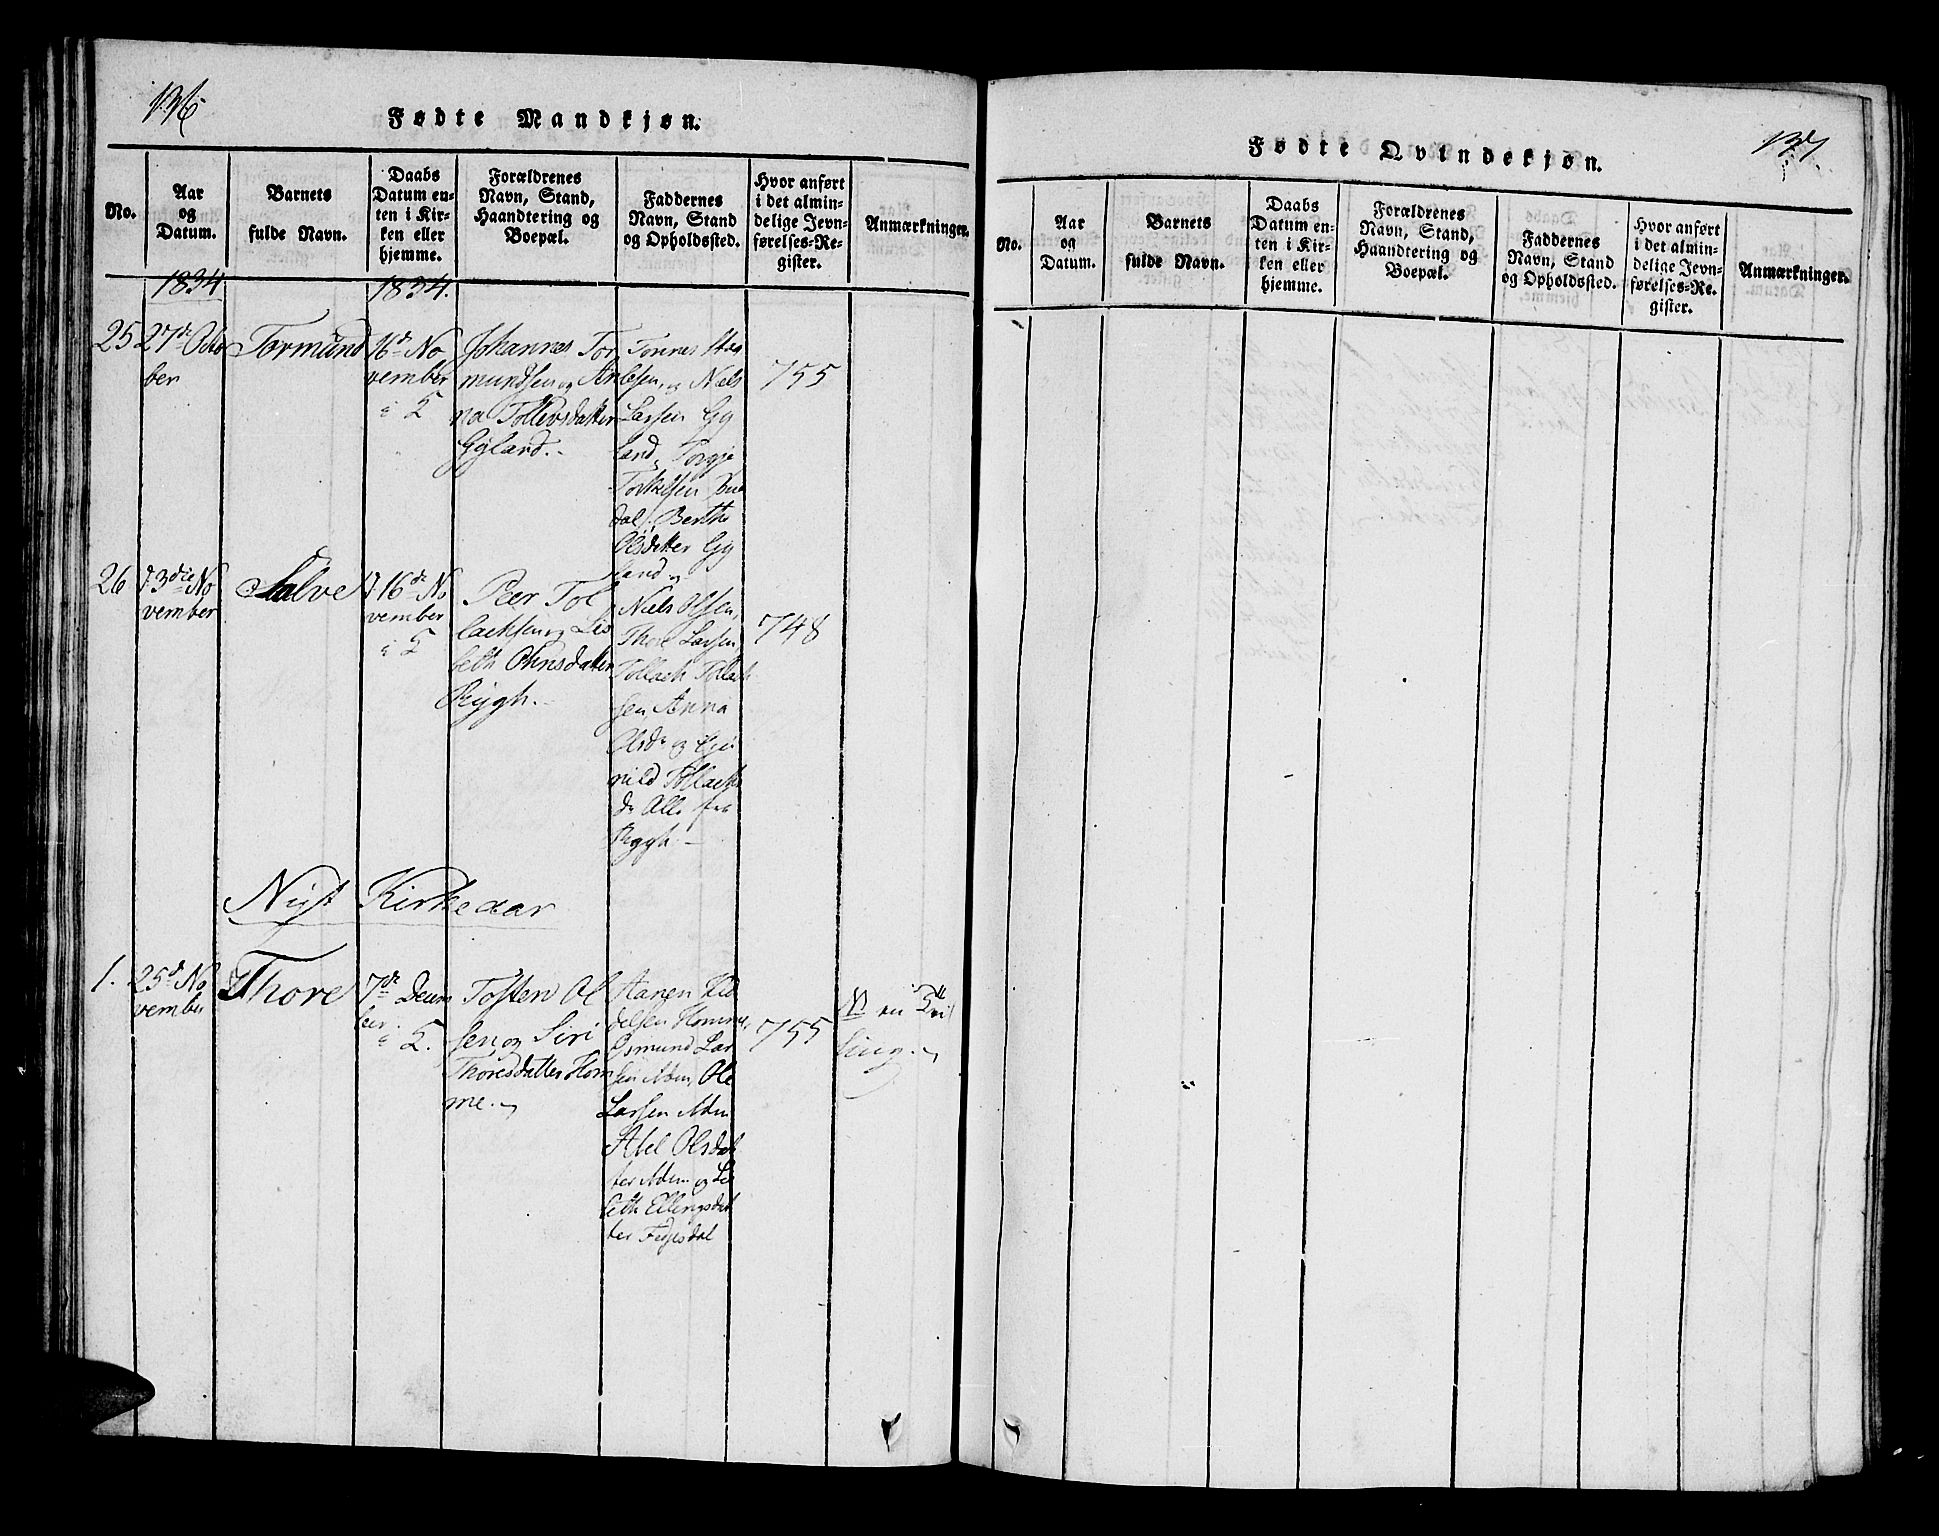 136
Fødte Mandkjøn.
No.
Aar
og
Datum.
Barnets
fulde Navn.
Daabs
Datum en-
ten i Kir-
ken eller
hjemme.
Forældrenes
Navn, Stand,
Haandtering og
Boepæl.
Faddernes
Navn, Stand
og Opholdssted.
Hvor anført
i det almin-
delige Jevn-
førelses-Re-
gister.
Anmærkninger.
1834
1834.
25
27de Octo
ber
Tormund
16de No
vember
i
Johannes Tor
mundsen og An
na Tollevsdatter
Gyland.
Tønnes
og Niels
Larsen Gy
land, Torgje
Torkelsen
dal, Berthe
Olsdatter Gy
land
755
26
d. 3die No
vember
Salve
d. 16de No
vember
i
Peer Tol
lachsen og Lis
beth Ohnsdatter
Rygh.
Niels Olsen,
Thore Larsen,
Tollach Tollach
sen, Anna
Olsdr og Gu
nild Tollachs
dr Alle fra
Rygh.
748
Nyt Kirkeaar
1.
25de No
vember
Thore
7de Decem
ber
i
Tosten Ol
sen og Siri
Thoresdatter Hom
me.
Aanen
delsen Homme,
Osmund Lar
sen Ole
Larsen
Abel Olsdat
ter og Lis
beth Ellingsdat
ter Fidjesdal
755
en Tvil
ling.
137
Fødte Qvindekjøn.
No.
Aar
og
Datum.
Barnets
fulde Navn.
Daabs
Datum en-
ten i Kir-
ken eller
hjemme.
Forældrenes
Navn, Stand,
Haandtering og
Boepæl.
Faddernes
Navn, Stand
og Opholdssted.
Hvor anført
i det almin-
delige Jevn-
førelses-Re-
gister.
Anmærkninger.